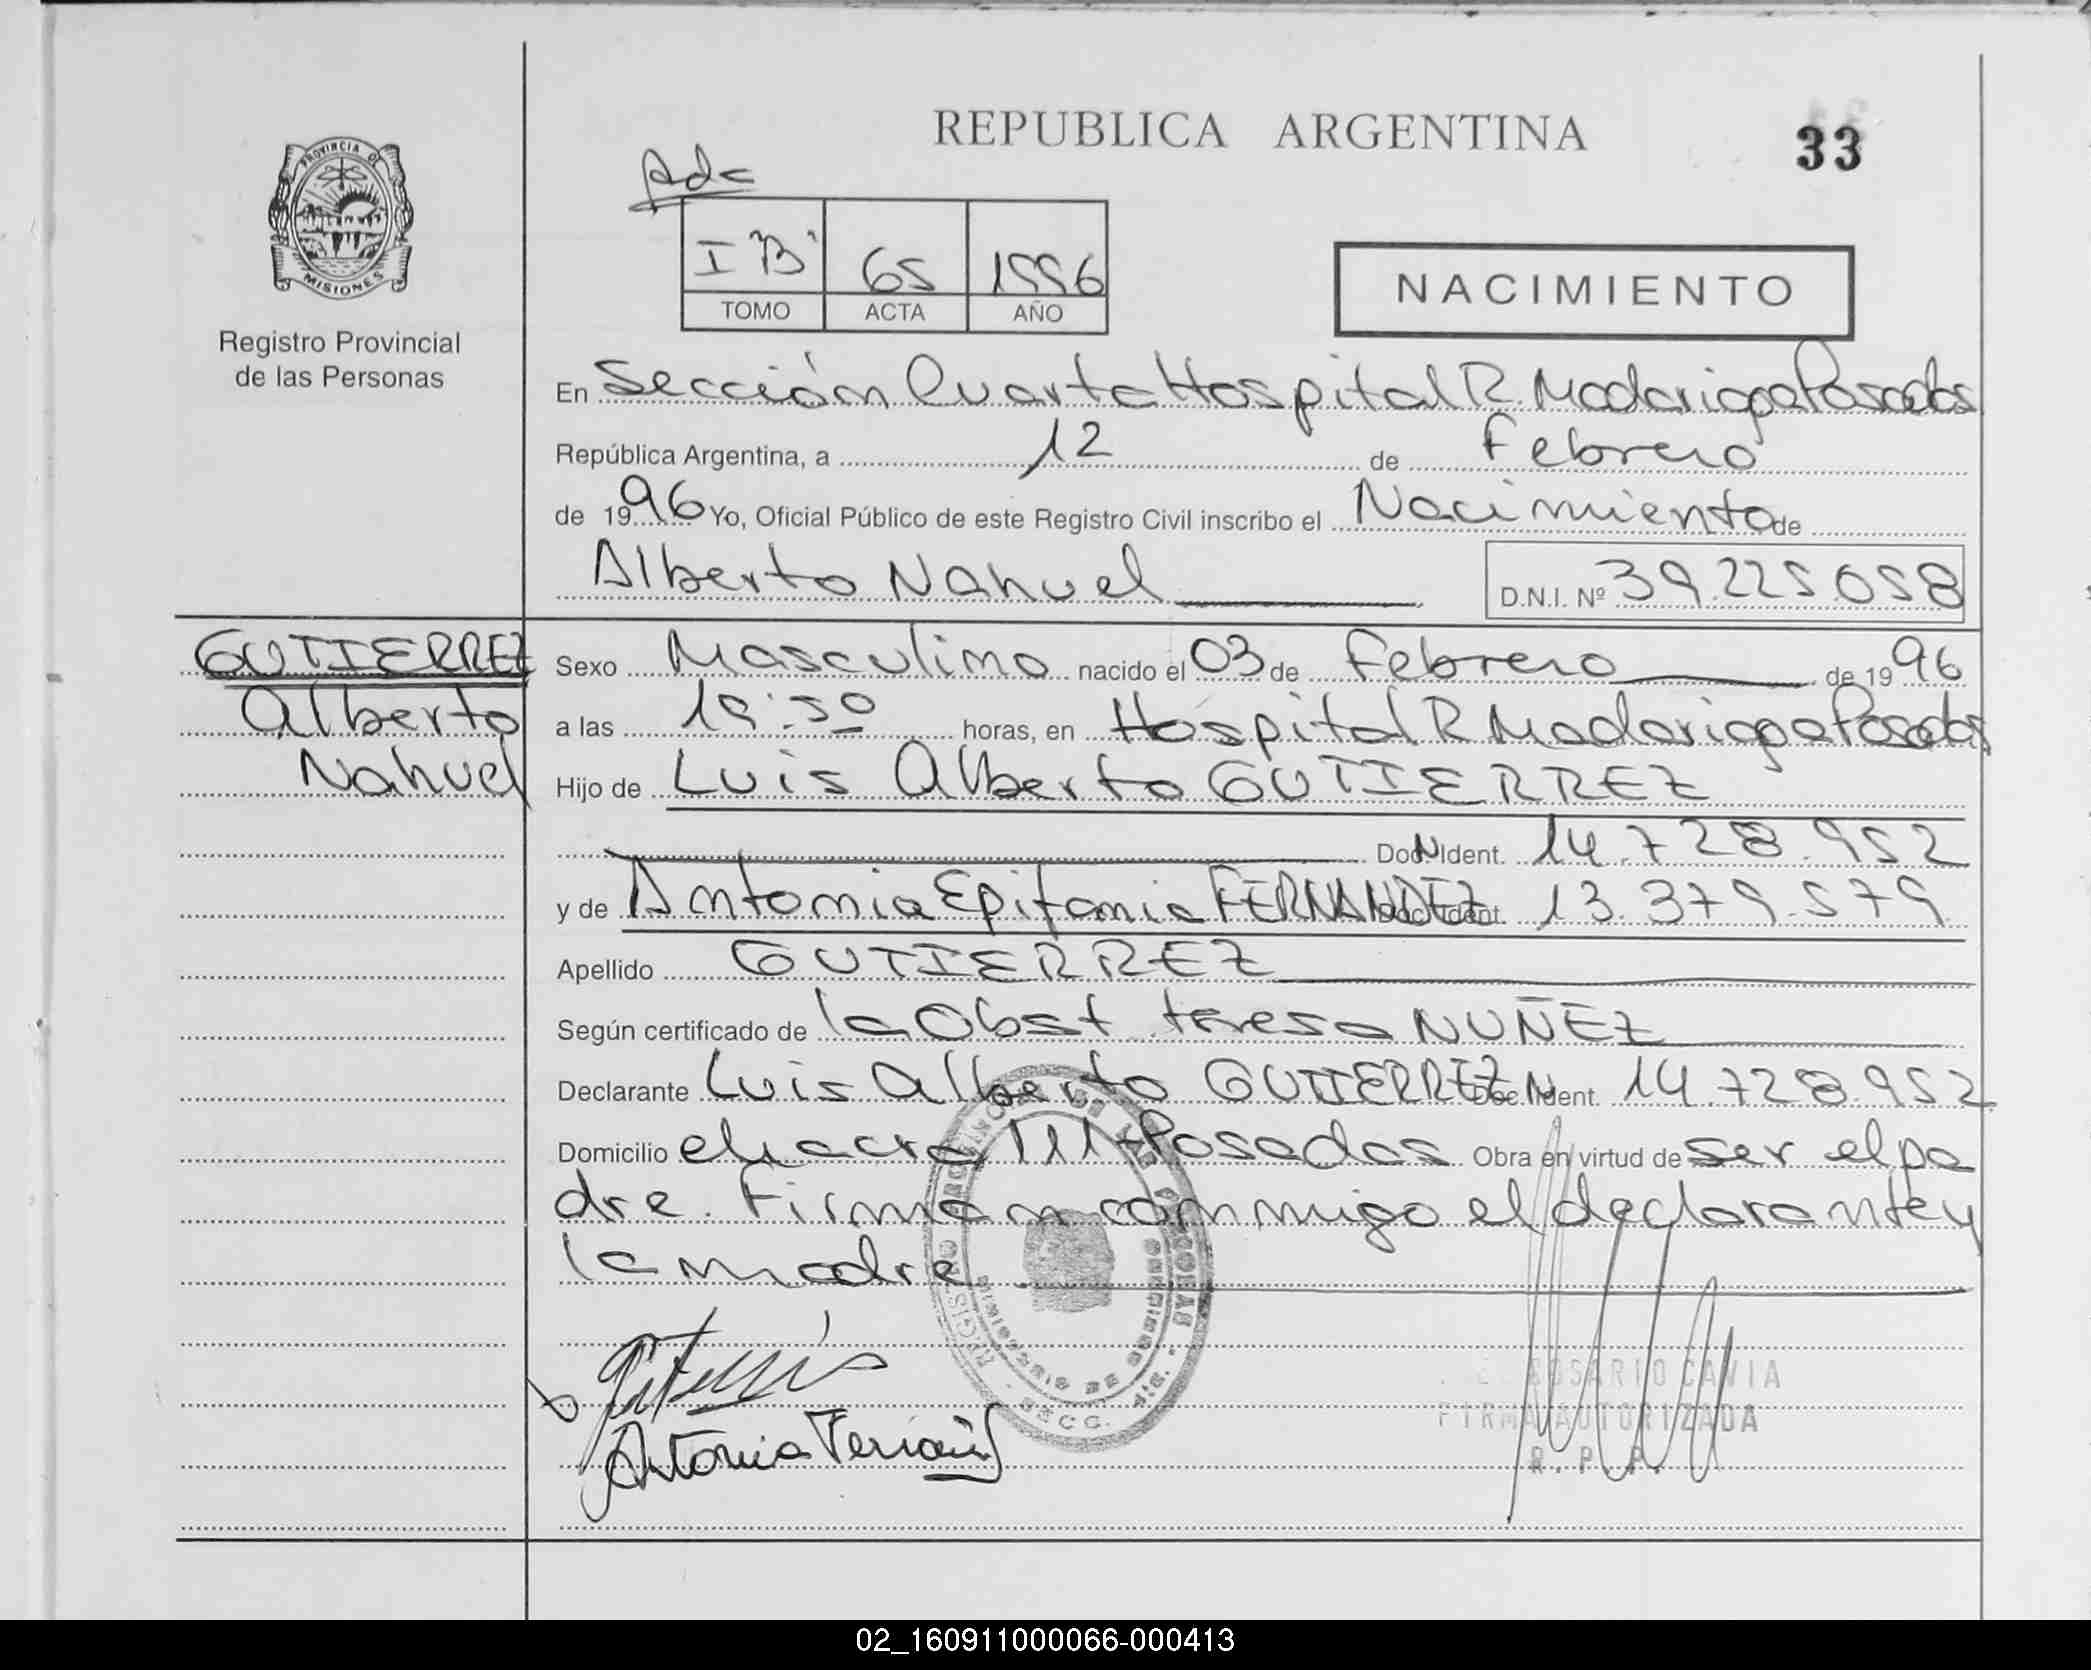 REPUBLICA ARGENTINA
33
Adc
PROVINCIA DE
MISIONES
Registro Provincial
de las Personas
I "B" 65 1996
TOMO ACTA AÑO
NACIMIENTO
En Sección Cuarta Hospital R. Madariaga Posadas
República Argentina, a 12 de Febrero
de 1996 Yo, Oficial Público de este Registro Civil inscribo el Nacimiento de
Alberto Nahuel D.N.I. Nº 39.225.058
GUTIERREZ
Alberto
Nahuel
Sexo Masculino nacido el 03 de Febrero de 1996
a las horas, en Hospital R Madariaga Posadas
Hijo de Luis Alberto GUTIERREZ
Doc. N Ident. 14.728.952
y de Antonia Epifania FERNANDEZ Doc. Ident. 13.379.579
Apellido GUTIERREZ
Según certificado de la Obst teresa NUÑEZ
Declarante Luis Alberto GUTIERREZ Doc. N Ident. 14.728.952
Domicilio chacra 111-Posadas Obra en virtud de ser el pa
dre. Firman conmigo el declarante y
la madre
Antonia
ROSARIO CAVIA
FIRMA AUTORIZADA
R. P. P.
02_160911000066-000413